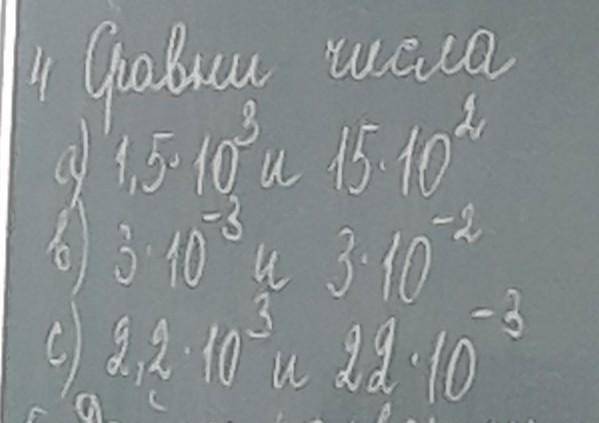 4 Сравни числа
a) 1,5·10³ и 15·10²
b) 3·10⁻³ и 3·10⁻²
c) 2,2·10³ и 22·10⁻³